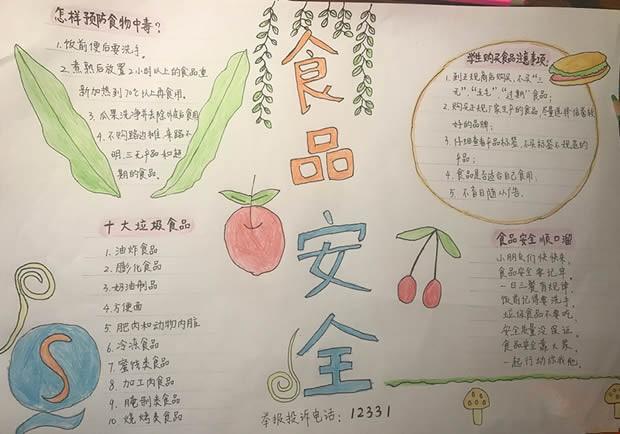 怎样预防食物中毒?
1. 饭前便后要洗手。
2. 煮熟后放置2小时以上的食品重
新加热到70℃以上再食用。
3. 瓜果洗净并去除外皮后食用
4. 不购路边摊、来路不
明、三无产品和超
期的食品。
食品安全
学生购买食品注意事项:
1. 到正规商店购买,不买“三
无”、“过期”食品;
2. 购买正规厂家生产的食品,尽量选择信誉较
好的品牌;
3. 仔细查看产品标签,不买标签不规范的
产品;
4. 食品是否适合自己食用
5. 不盲目随从广告。
十大垃圾食品
1. 油炸食品
2. 膨化食品
3. 奶油制品
4. 方便面
5. 肥肉和动物内脏
6. 冷冻食品
7. 蜜饯类食品
8. 加工肉食品
9. 腌制类食品
10. 烧烤类食品
S
食品安全顺口溜
小朋友们快快来,
食品安全要记牢。
一日三餐有规律,
饭前记得要洗手。
垃圾食品不要吃,
安全质量没保证。
食品安全靠大家,
一起行动你我他。
举报投诉电话:12331